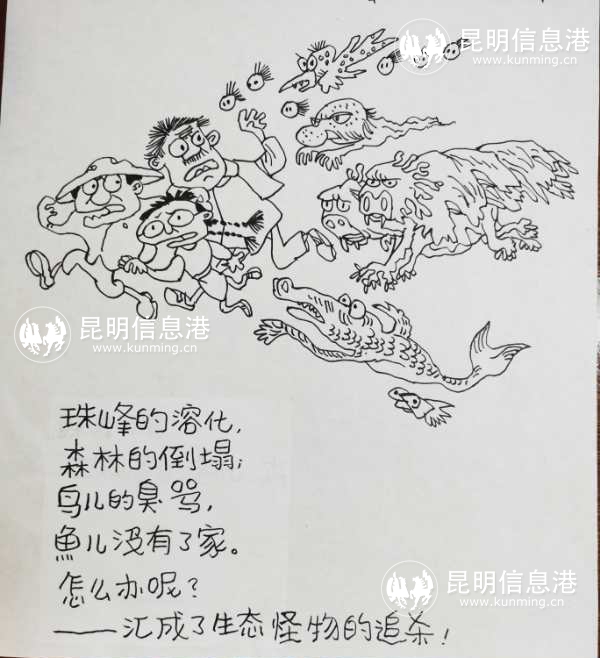 昆明信息港
www.kunming.cn
昆明信息港
www.kunming.cn
珠峰的溶化，
森林的倒塌；
鸟儿的臭骂，
魚儿没有了家。
怎么办呢？
——汇成了生态怪物的追杀！
昆明信息港
www.kunming.cn